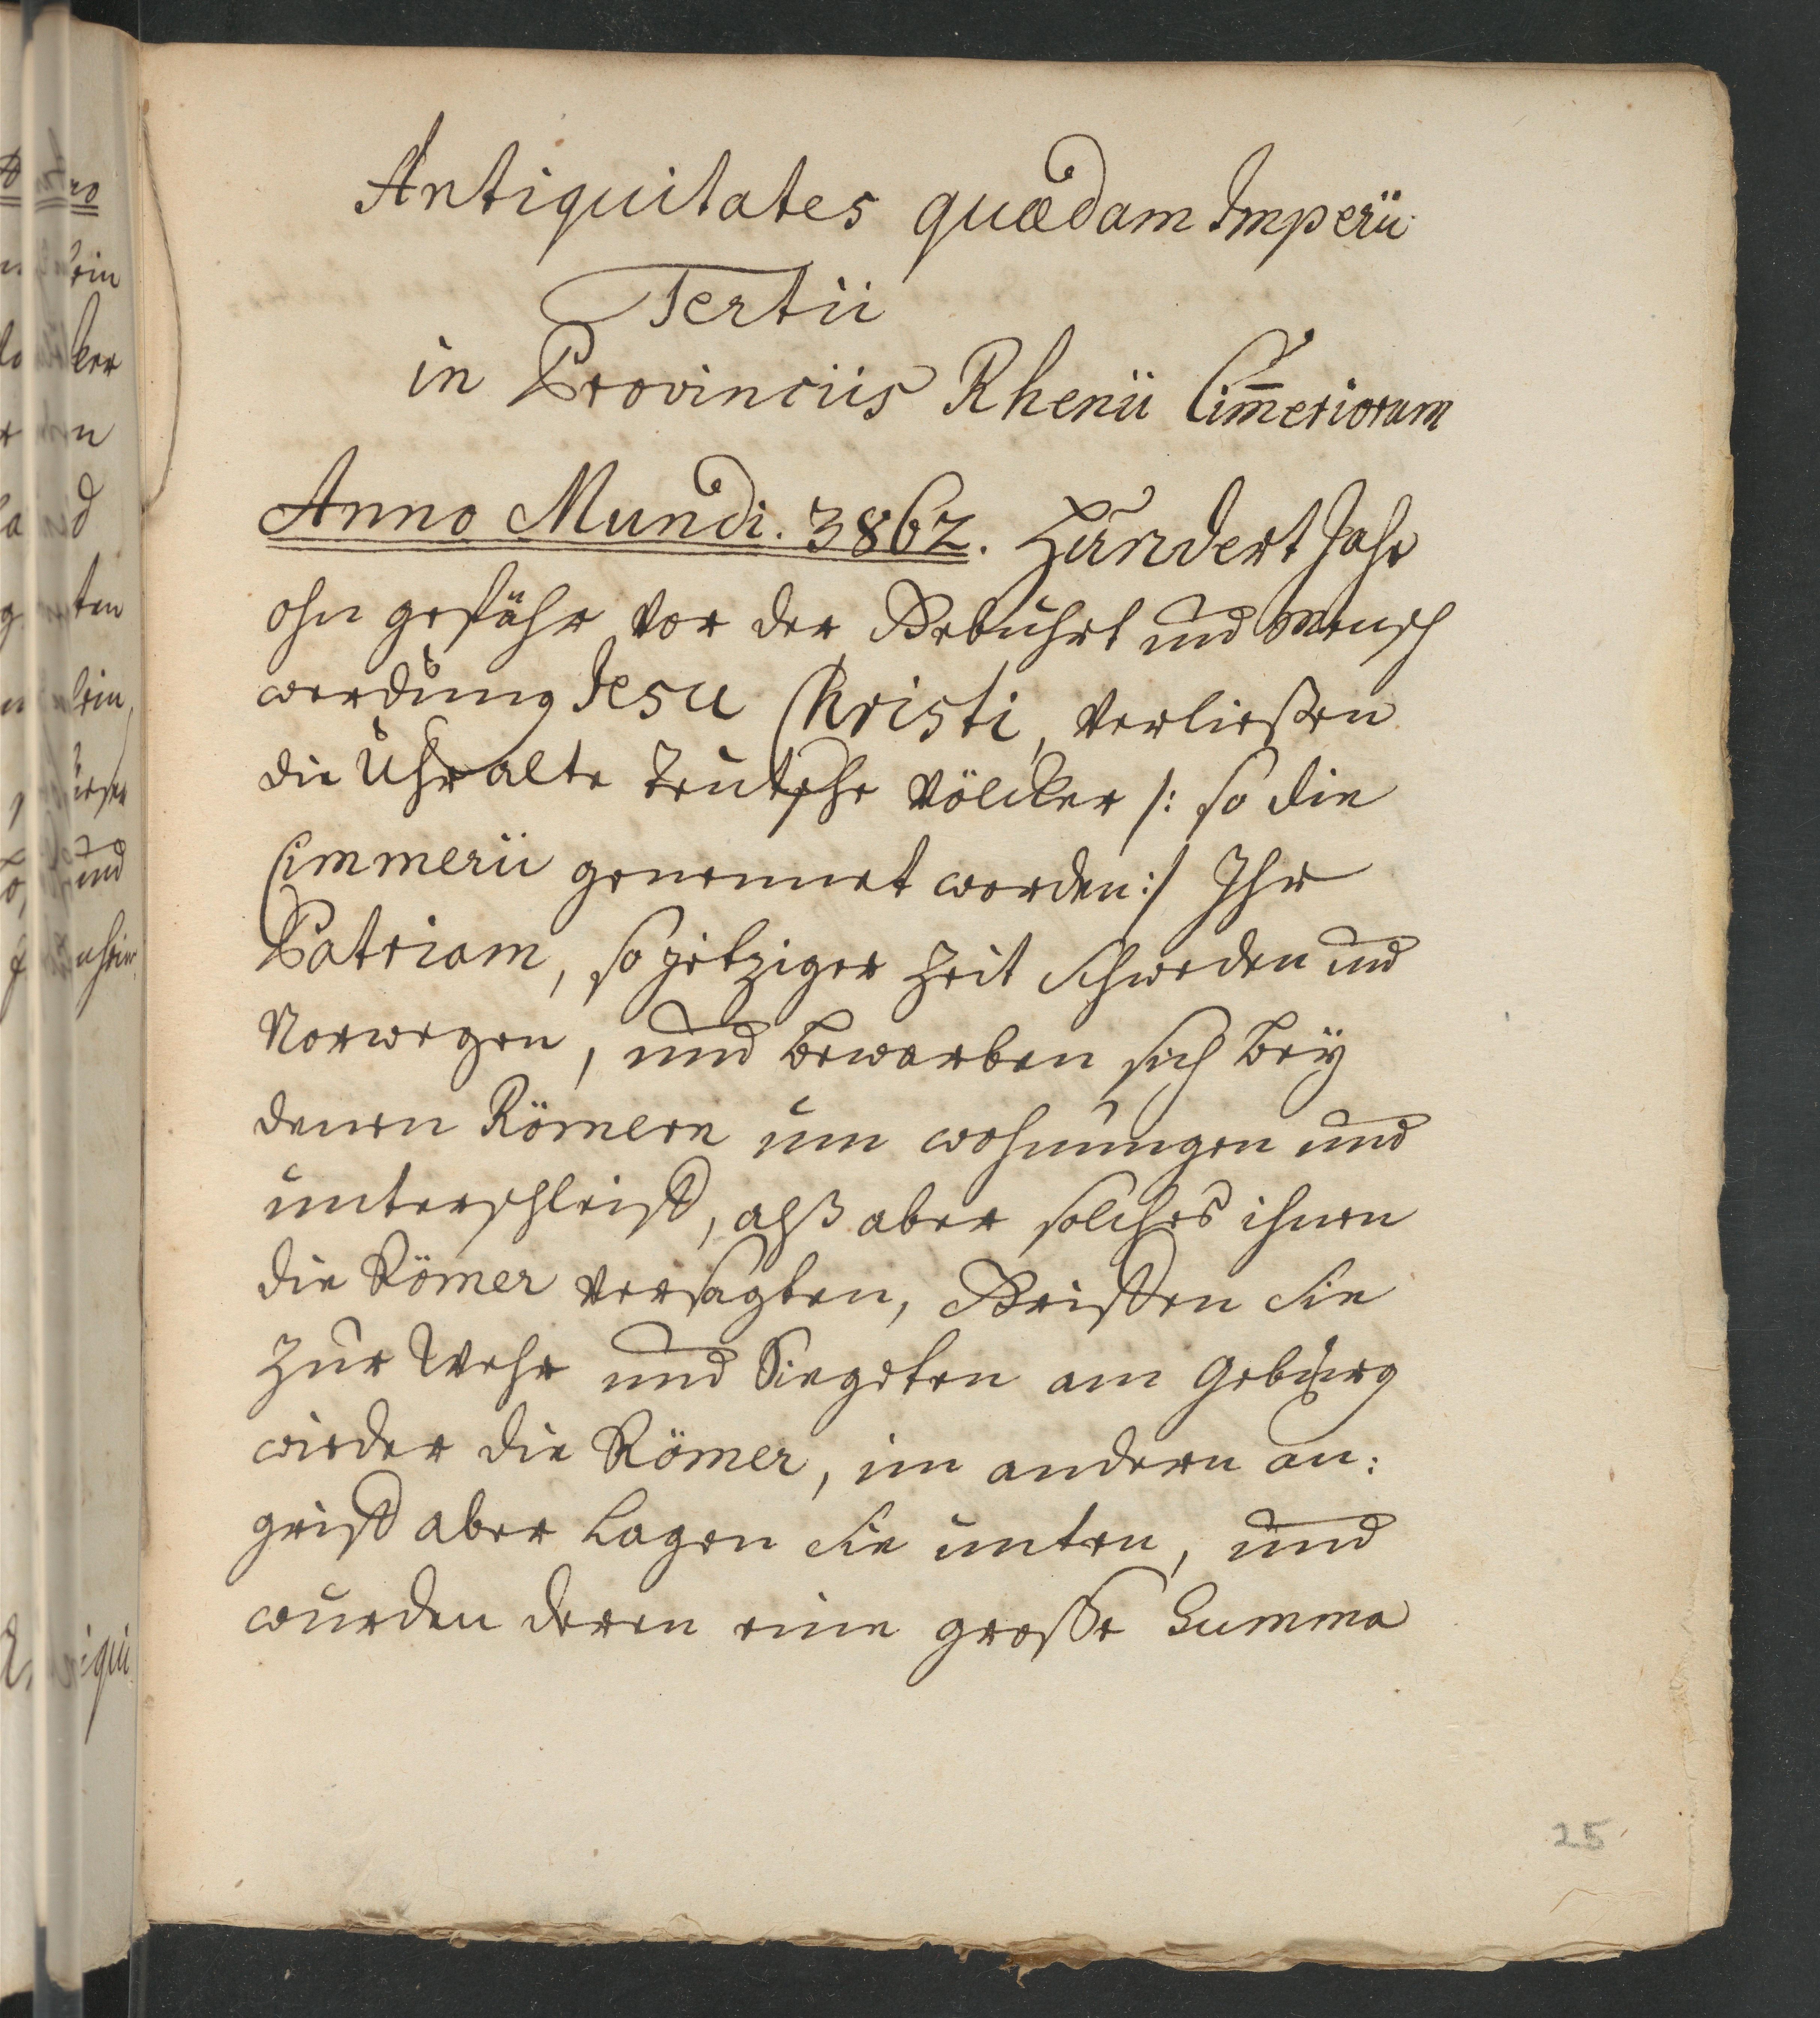 Antiquitates quædam Imperii
Tertii
in Provinciis Rhenii Cim̅eriorum
Anno Mundi. 3862. Hundert Jahr
ohn gefähr vor der Gebuhrt und Mensch
werdung Jesu Christi, verließen
die Uhralte Teutsche Völcker /: so die
Cimmerii genennet worden :/ Ihr
Patriam, so jetziger Zeit Schweden und
Norwegen, und bewarben sich beÿ
denen Römern um wohnungen und
unterschleiff, alß aber solches ihnen
die Römer versagten, Griffen Sie
zur Wehr und Siegeten am Gebürg
wieder die Römer, im andern an:
griff aber Lagen Sie unten, und
wurden deren eine grosse Summa
25